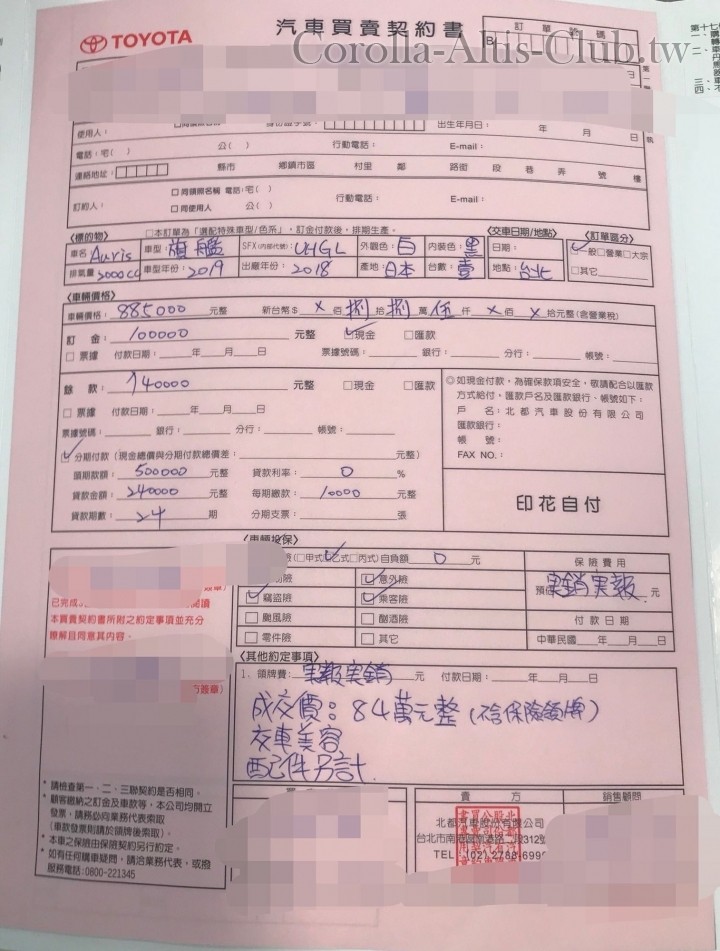 TOYOTA
汽車買賣契約書
訂單號碼
Corolla-Altis-Club.tw
使用人：
出生年月日： 年 月 日
電話：宅( ) 公( ) 行動電話： E-mail：
連絡地址： 縣市 鄉鎮市區 村里 鄰 路街 段 巷 弄 號 樓
訂約人： □同領照名稱 電話：宅( ) 行動電話： E-mail：
□同使用人 公( )
〈標的物〉 □本訂單為「選配特殊車型/色系」，訂金付款後，排期生產。 〈交車日期/地點〉 〈訂單區分〉
車名 Auris 車型： 旗艦 SFX(內部代號)： UHGL 外觀色： 白 內裝色： 黑 日期： ☑一般□營業□大宗
排氣量 2000cc 車型年份： 2019 出廠年份： 2018 產地： 日本 台數： 壹 地點： 台北 □其它
〈車輛價格〉
車輛價格： 885000 元整 新台幣$ X 佰 捌 拾 捌 萬 伍 仟 X 佰 X 拾元整(含營業稅)
訂 金： 100000 元整 ☑現金 □匯款
□票據 付款日期： 年 月 日 票據號碼： 銀行： 分行： 帳號：
餘 款： 740000 元整 □現金 □匯款
□票據 付款日期： 年 月 日
票據號碼： 銀行： 分行： 帳號：
☑分期付款（現金總價與分期付款總價差： 元整）
頭期款額： 500000 元整 貸款利率： 0 %
貸款金額： 240000 元整 每期繳款： 10000 元整
貸款期數： 24 期 分期支票： 張
◎如現金付款，為確保款項安全，敬請配合以匯款
方式給付，匯款戶名及匯款銀行、帳號如下：
戶 名：北都汽車股份有限公司
匯款銀行：
帳 號：
FAX NO.：
印花自付
〈車輛投保〉
險(□甲式☑乙式□丙式)自負額 0 元 保險費用
☑意外險 預估 實銷實報 元
☑竊盜險 ☑乘客險
□颱風險 □酗酒險 付款日期
□零件險 □其它 中華民國 年 月 日
已完成
本買賣契約書所附之約定事項並充分
瞭解且同意其內容。
方簽章）
〈其他約定事項〉
1. 領牌費： 實報實銷 元 付款日期： 年 月 日
成交價：84萬元整(不含保險領牌)
交車美容
配件另計
* 請檢查第一、二、三聯契約是否相同。
* 顧客繳納之訂金及車款等，本公司均開立
發票，請務必向業務代表索取
（車款發票則請於領牌後索取）。
* 本車之保險由保險契約另行約定。
* 如有任何購車疑問，請洽業務代表，或撥
服務電話:0800-221345
賣 方 銷售顧問
北都汽車股份有限公司
台北市南港區南港路二段312號
TEL：(02)2788-699